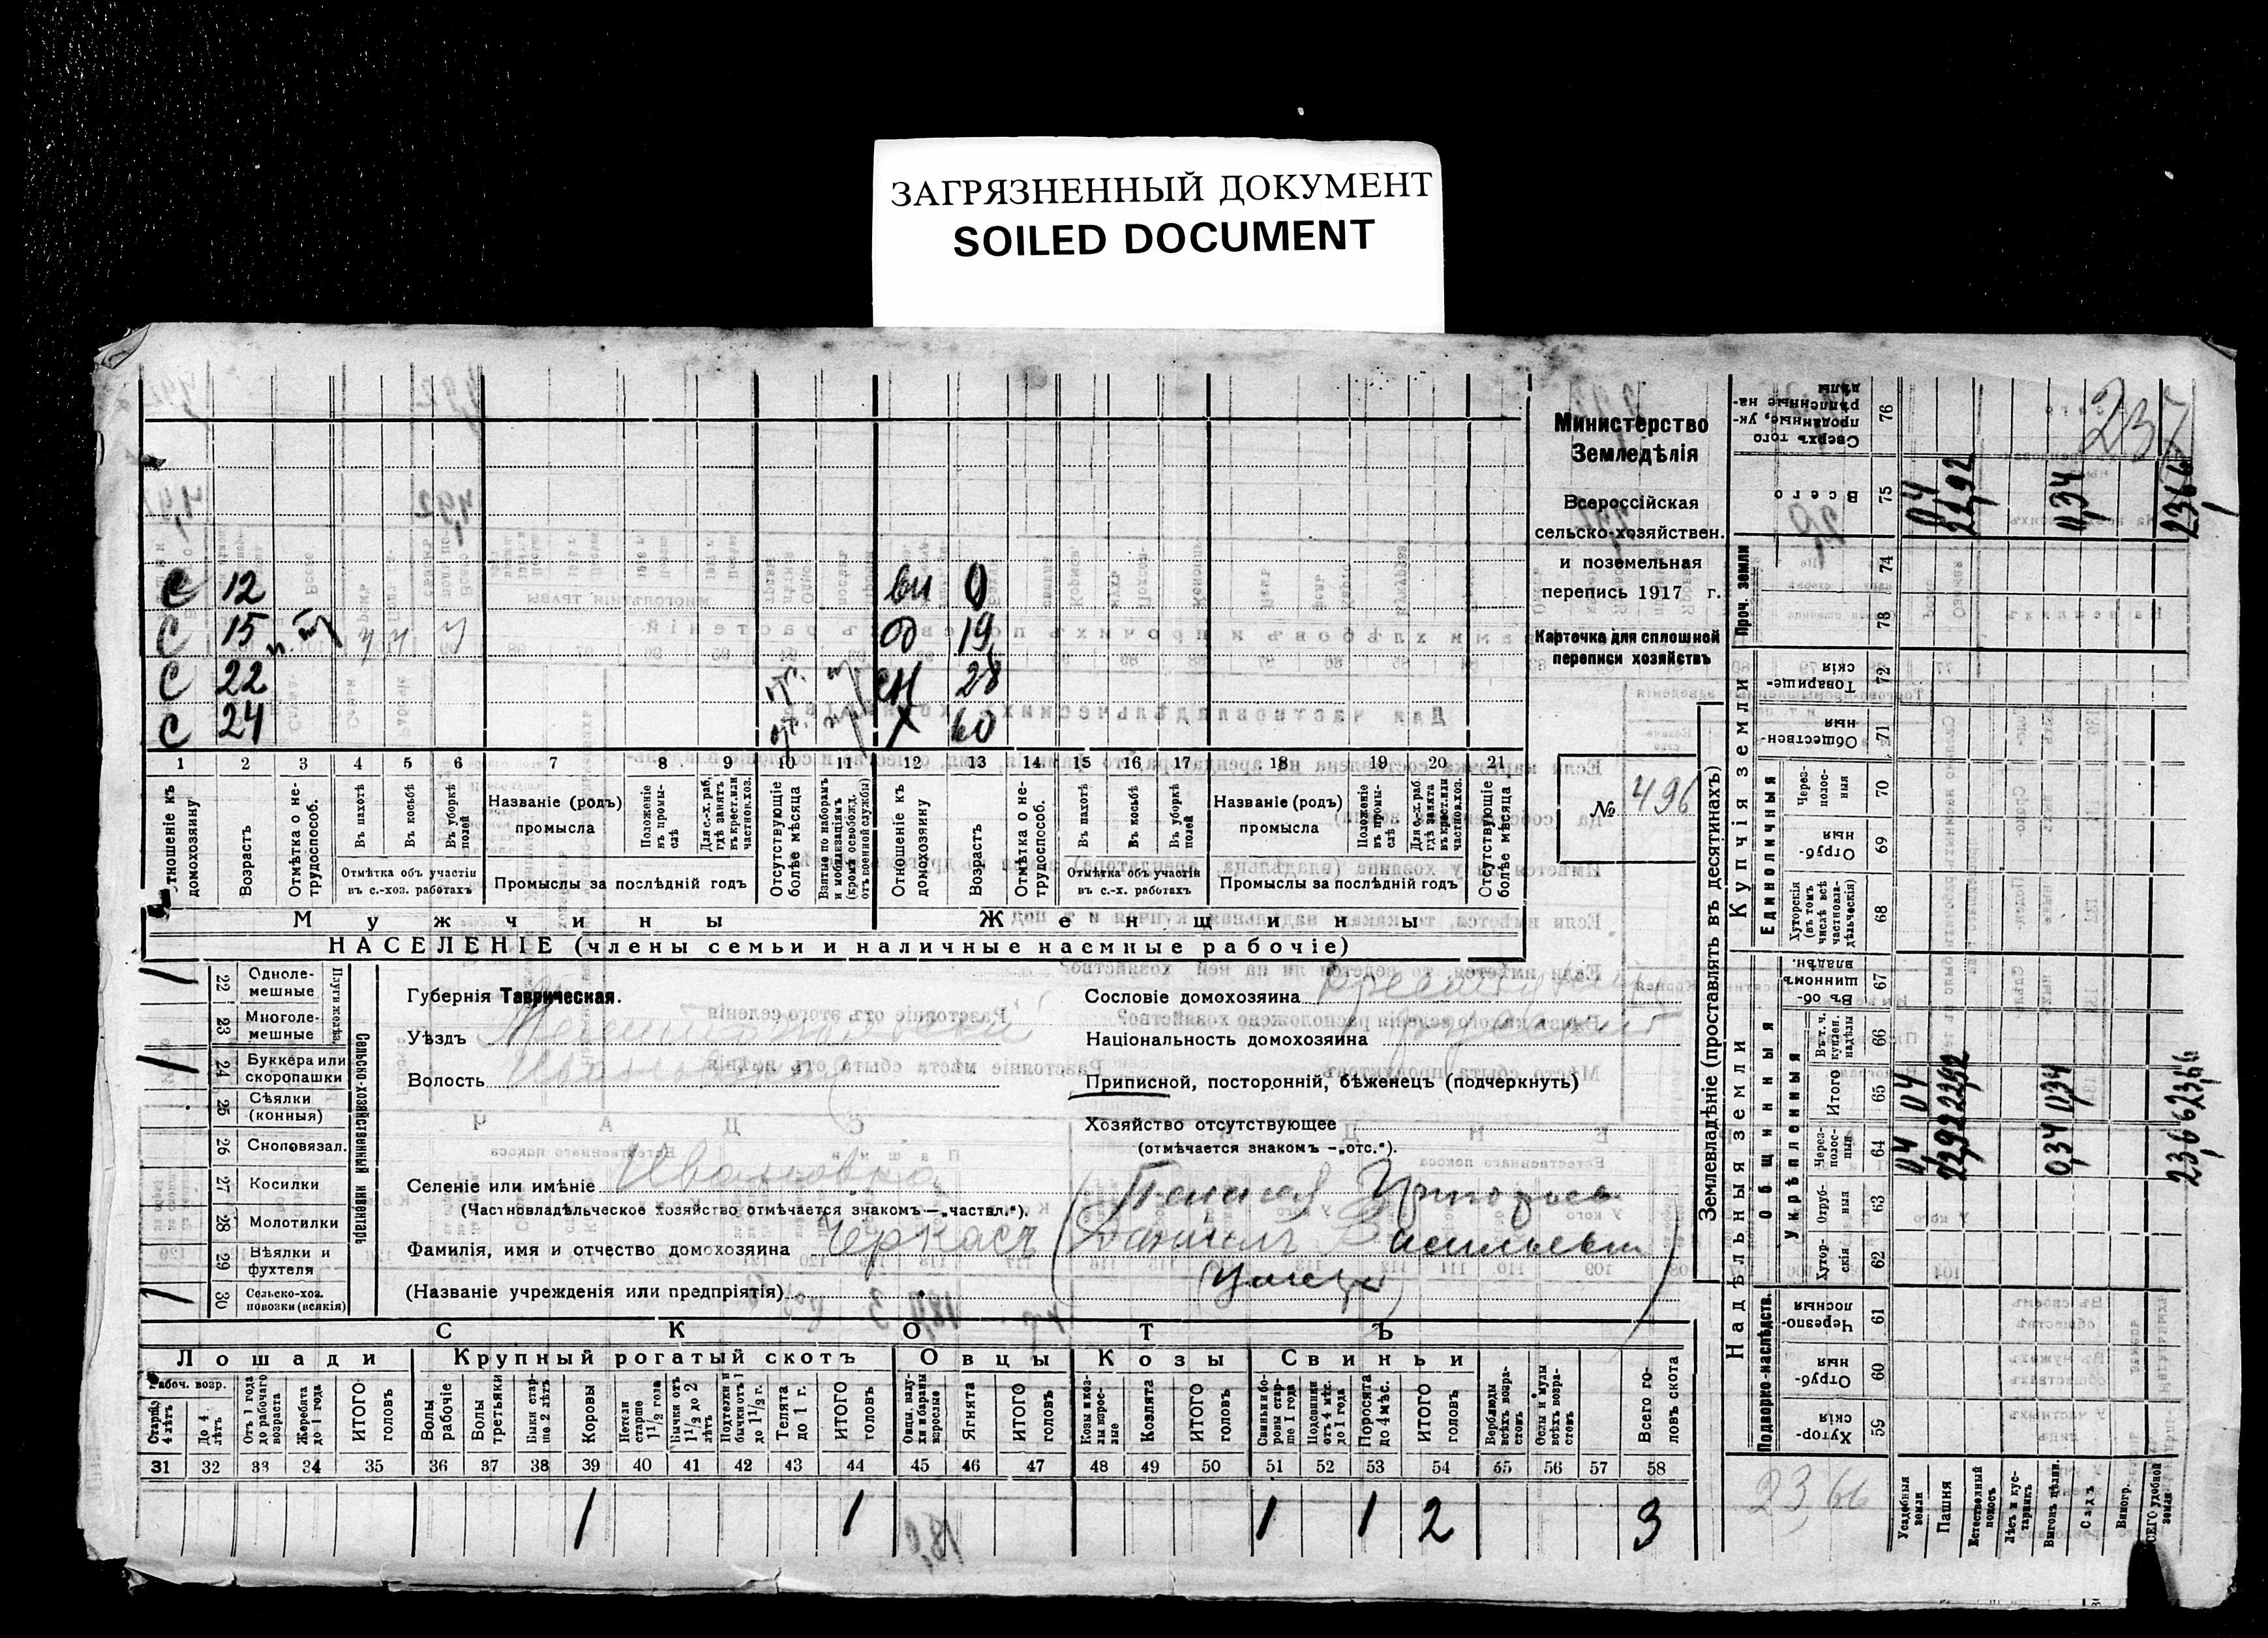 ЗАГРЯЗНЕННЫЙ ДОКУМЕНТ
SOILED DOCUMENT
237
Министерство
Земледѣлія
Всероссійская
сельско-хозяйствен.
и поземельная
перепись 1917 г.
Карточка для сплошной
переписи хозяйствъ
№ 496
С 12 вн 0
С 15 О 19
С 22 сн 28
С 24 Х 60
1 2 3 4 5 6 7 8 9 10 11 12 13 14 15 16 17 18 19 20 21
Отношеніе къ домохозяину
Возрастъ
Отмѣтка о не-трудоспособ.
Въ пахотѣ
Въ косьбѣ
Въ уборкѣ полей
Отмѣтка объ участіи
въ с.-хоз. работахъ
Названіе (родъ)
промысла
Положеніе въ промы-слѣ
Для с.-х. раб. гдѣ занятъ въ крест. или частнов. хоз.
Промыслы за послѣдній годъ
Отсутствующіе болѣе мѣсяца
Взятые по наборамъ и мобилизаціямъ (кромѣ освобожд. отъ военной службы)
Отношеніе къ домохозяину
Возрастъ
Отмѣтка о не-трудоспособ.
Въ пахотѣ
Въ косьбѣ
Въ уборкѣ полей
Отмѣтка объ участіи
въ с.-х. работахъ
Названіе (родъ)
промысла
Положеніе въ промы-слѣ
Для с.-х. раб. гдѣ занята въ крест. или частнов. хоз.
Промыслы за послѣдній годъ
Отсутствующіе болѣе мѣсяца
Мужчины
Женщины
НАСЕЛЕНІЕ (члены семьи и наличные наемные рабочіе)
Сельско-хозяйственный инвентарь
Плуги желѣз.
22 Одноле-мешные 1
23 Многоле-мешные
24 Буккера или скоропашки 1
25 Сѣялки (конныя)
26 Сноповязал.
27 Косилки
28 Молотилки
29 Вѣялки и фухтеля
30 Сельско-хоз. повозки (всякія) 1
Губернія Таврическая.
Уѣздъ
Волость
Селеніе или имѣніе Ивановка
(Частновладѣльческое хозяйство отмѣчается знакомъ—„частвл.“).
Фамилія, имя и отчество домохозяина Черкасъ Даніилъ Васильевъ
(Названіе учрежденія или предпріятія)
Сословіе домохозяина
Національность домохозяина
Приписной, посторонній, бѣженецъ (подчеркнуть)
Хозяйство отсутствующее
(отмѣчается знакомъ —„отс.“).
СКОТЪ
Лошади Крупный рогатый скотъ Овцы Козы Свиньи
Рабоч. возр.
Старше 4 лѣтъ
До 4 лѣтъ
Отъ 1 года до рабочаго возраста
Жеребята до 1 года
ИТОГО головъ
Волы рабочіе
Волы третьяки
Быки стар-ше 2 лѣтъ
Коровы
Нетели старше 1½ года
Бычки отъ 1½ до 2 лѣтъ
Подтелки и бычки отъ 1 до 1½ г.
Телята до 1 г.
ИТОГО головъ
Овцы, валу-хи и бараны взрослые
Ягнята
ИТОГО головъ
Козы и коз-лы взрос-лые
Козлята
ИТОГО головъ
Свиньи и бо-ровы стар-ше 1 года
Подсвинки отъ 4 мѣс. до 1 года
Поросята до 4 мѣс.
ИТОГО головъ
Верблюды всѣхъ возра-стовъ
Ослы и мулы всѣхъ возра-стовъ
Всего го-ловъ скота
31 32 33 34 35 36 37 38 39 40 41 42 43 44 45 46 47 48 49 50 51 52 53 54 55 56 57 58
1 1 1 1 2 3
Землевладѣніе (проставлять въ десятинахъ)
Надѣльныя земли
Купчія земли
Проч. земли
Подворно-наслѣдств.
Общинныя
Укрѣпленныя
Единоличныя
59 Хутор-скія
60 Отруб-ныя
61 Черезпо-лосныя
62 Хутор-скія
63 Отруб-ныя
64 Черезполос-ныя
65 Итого
66 Въ т. ч. куплен. надѣлы
67 Въ об-щинномъ владѣн.
68 Хуторскія (въ томъ числѣ всѣ частновла-дѣльческія)
69 Отруб-ныя
70 Через-полос-ныя
71 Обществен-ныя
72 Товарище-скія
78
74
75 Всего
76 Сверхъ того проданные, ук-рѣпленные на-дѣлы
Усадебныя земли
Пашня
Естественный покосъ
Лѣсъ и кус-тарникъ
Выгонъ цѣлин.
Садъ
Виногр.
ВСЕГО удобной земли
0,4 22,92 0,34 23,66
0,4 22,92 0,34 23,66
0,4 22,92 0,34 23,66
23,66